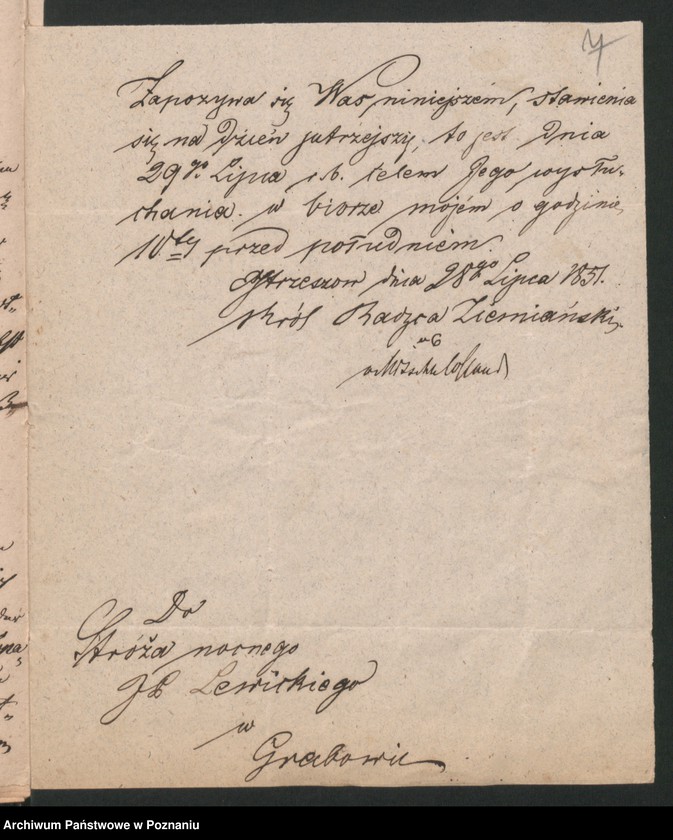 7
Zapozywa się Was niniejszém, stawienia
się na dzień jutrzejszy, to jest dnia
29go Lipca r. b. celem Jego wysłu-
chania w biorze mojém o godzinie
10tej przed południem.
Ostrzeszow dnia 28go Lipca 1851.
Król Radzca Ziemiański
Do
Stróża nocnego
Lewickiego
w
Grabowie
Archiwum Państwowe w Poznaniu